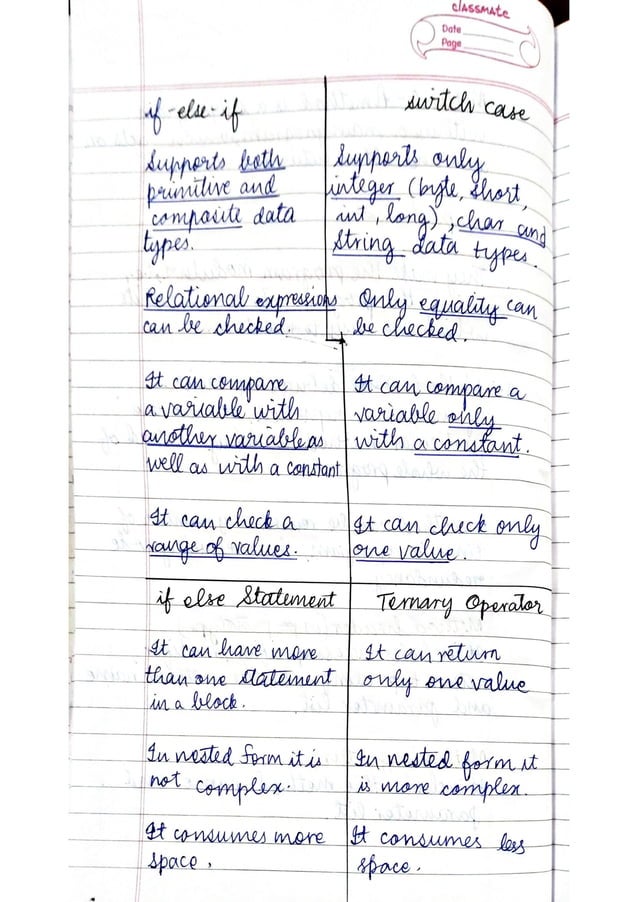 classmate
Date
Page
if-else-if
Supports both
primitive and
composite data
types.
Relational expressions
can be checked.
It can compare
a variable with
another variable as
well as with a constant
It can check a
range of values.
switch case
Supports only
integer (byte, short,
int, long), char and
String data types.
Only equality can
be checked.
It can compare a
variable only
with a constant.
It can check only
one value.
if else Statement
It can have more
than one statement
in a block.
In nested form it is
not complex.
It consumes more
space,
Ternary Operator
It can return
only one value
In nested form it
is more complex.
It consumes less
space.